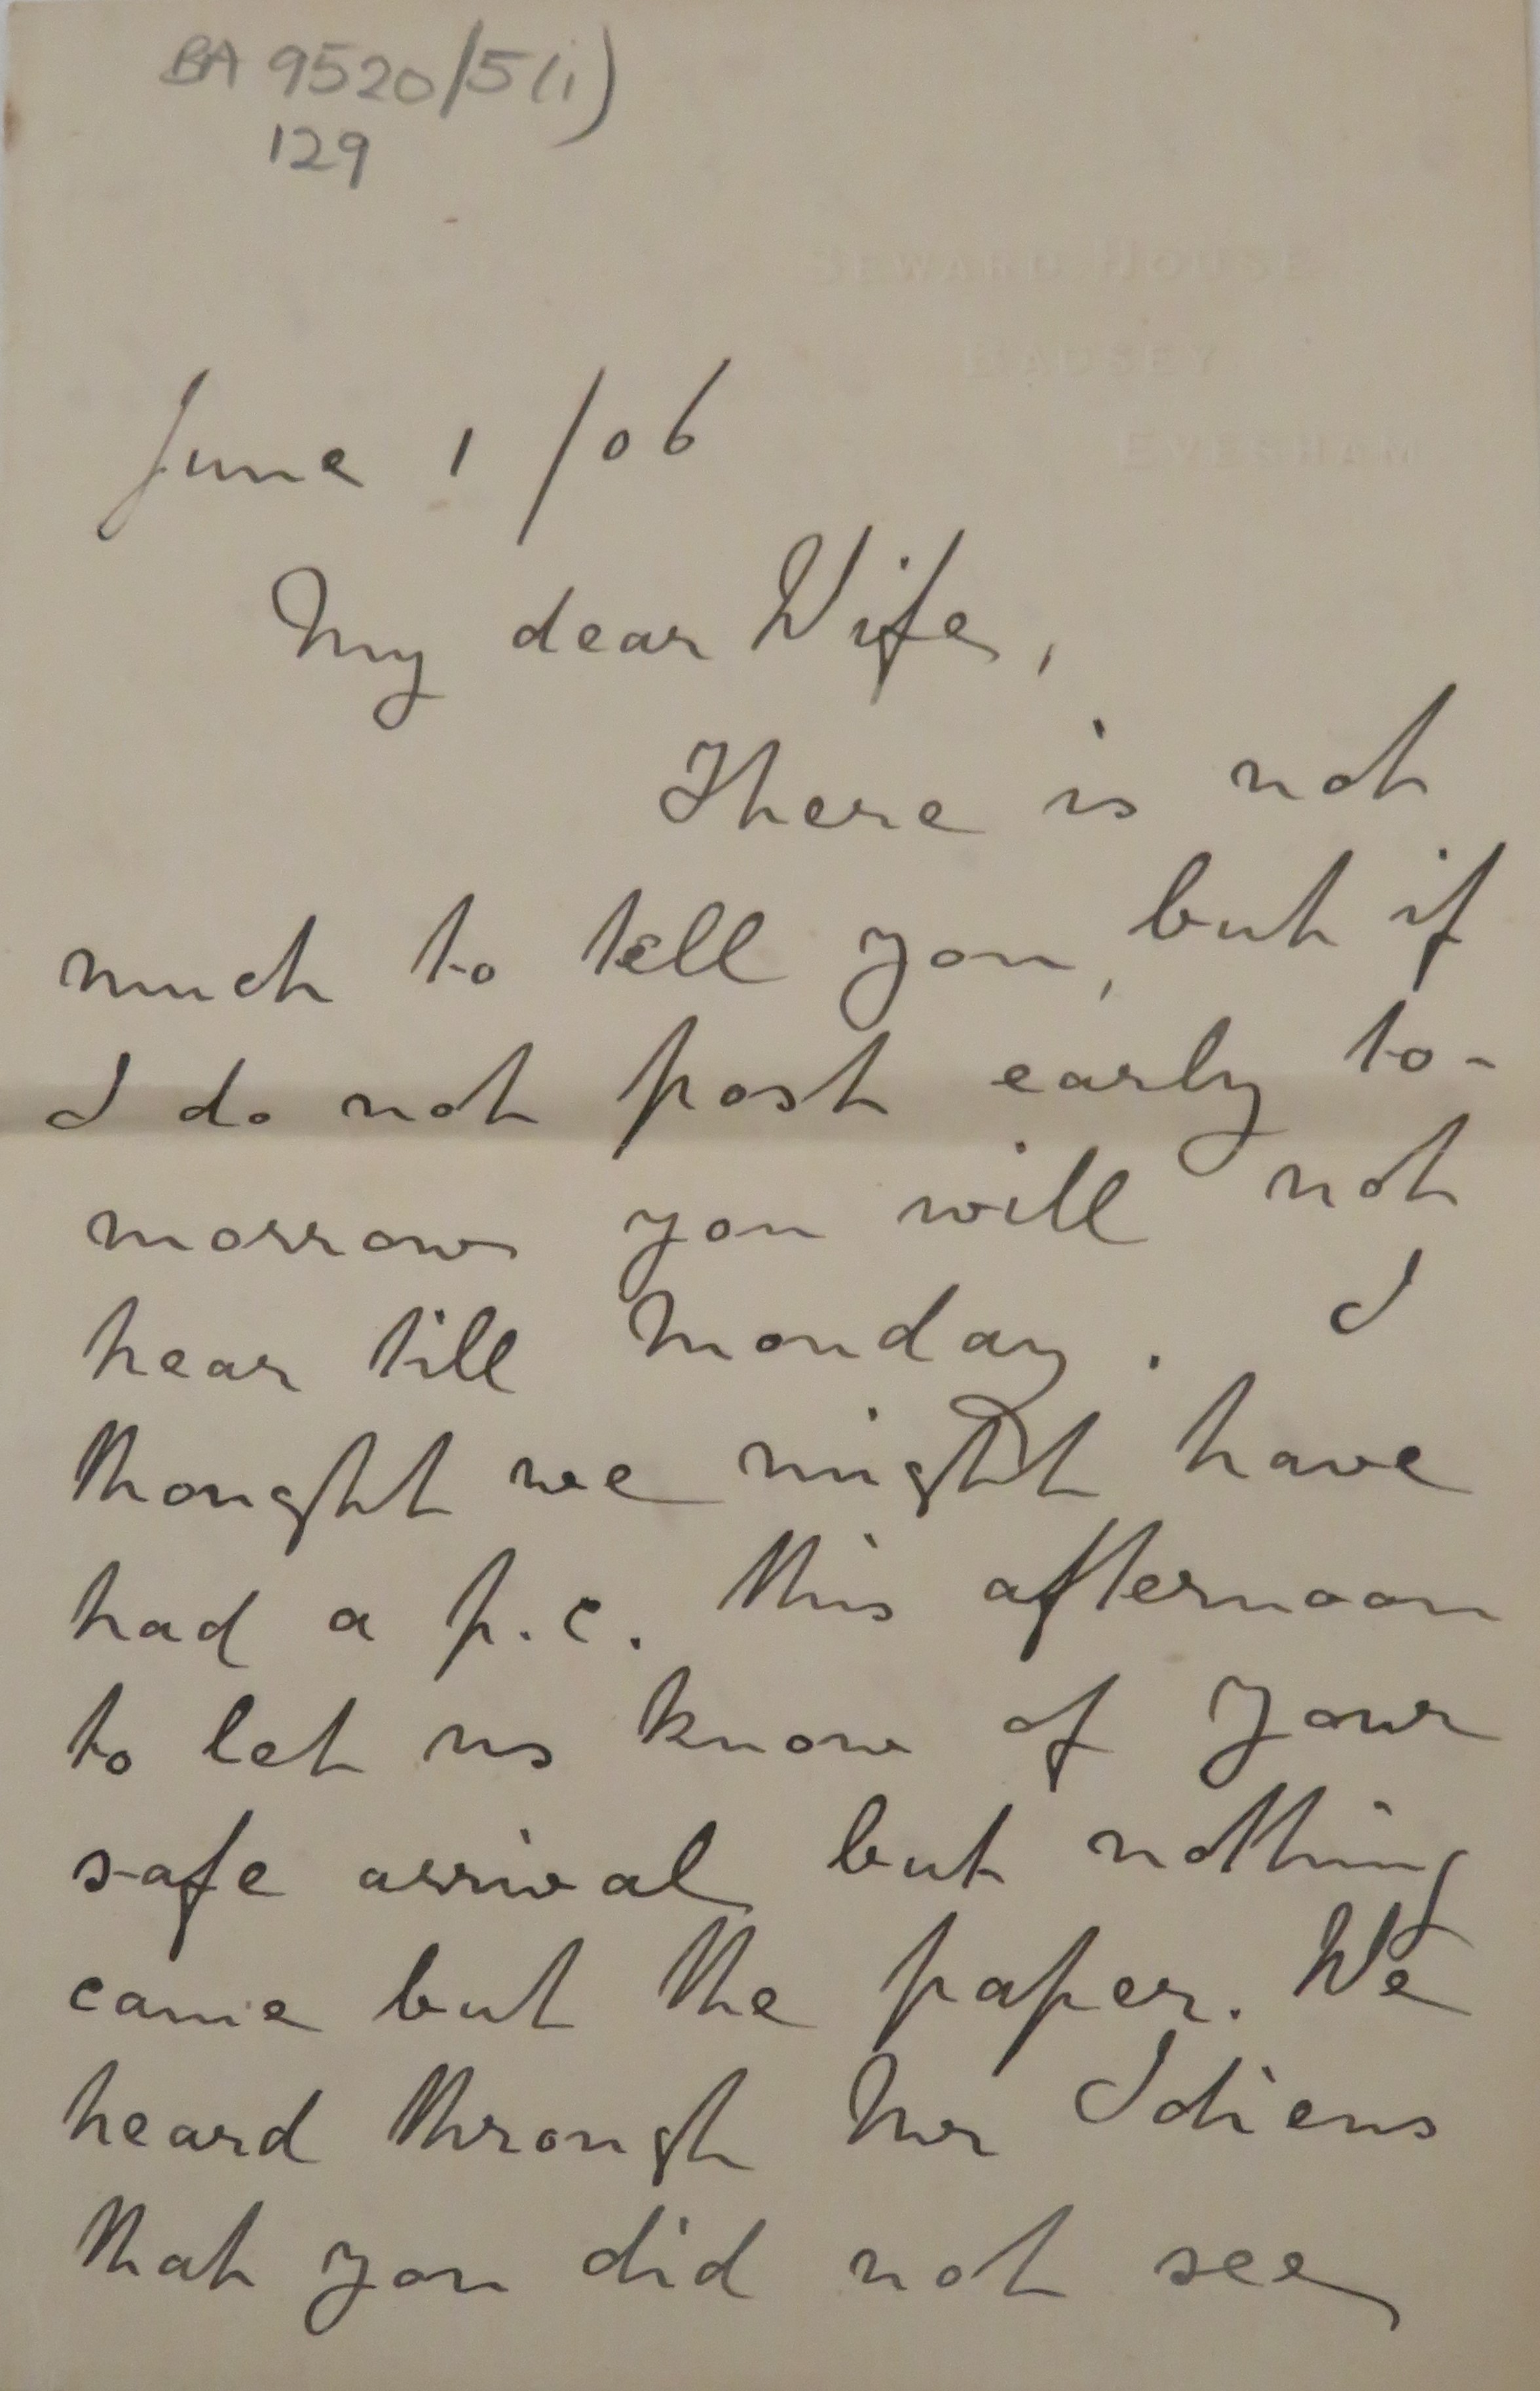 BA 9520/5(i)
129
SEWARD HOUSE
BADSEY
EVESHAM
June 1/06
My dear Wife,
There is not
much to tell you, but if
I do not post early to-
morrow you will not
hear till Monday. I
thought we might have
had a p.c. this afternoon
to let us know of your
safe arrival but nothing
came but the paper. We
heard through Mr Idiens
that you did not see